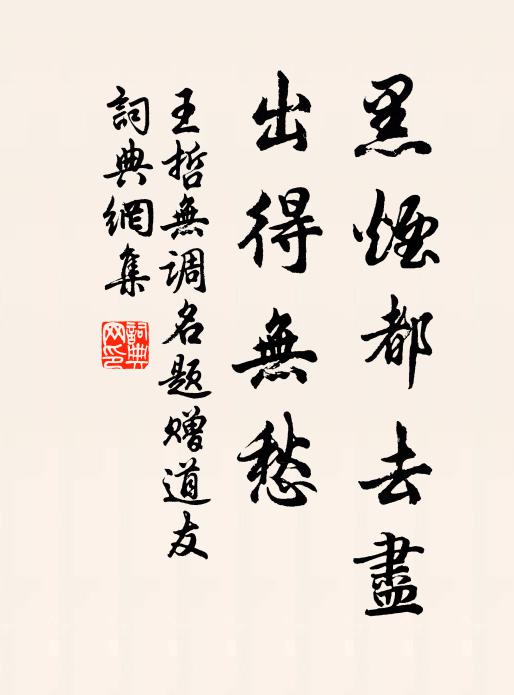 黑煙都去盡
出得無愁
王哲無调名题赠道友
詞典網集
詞典網印